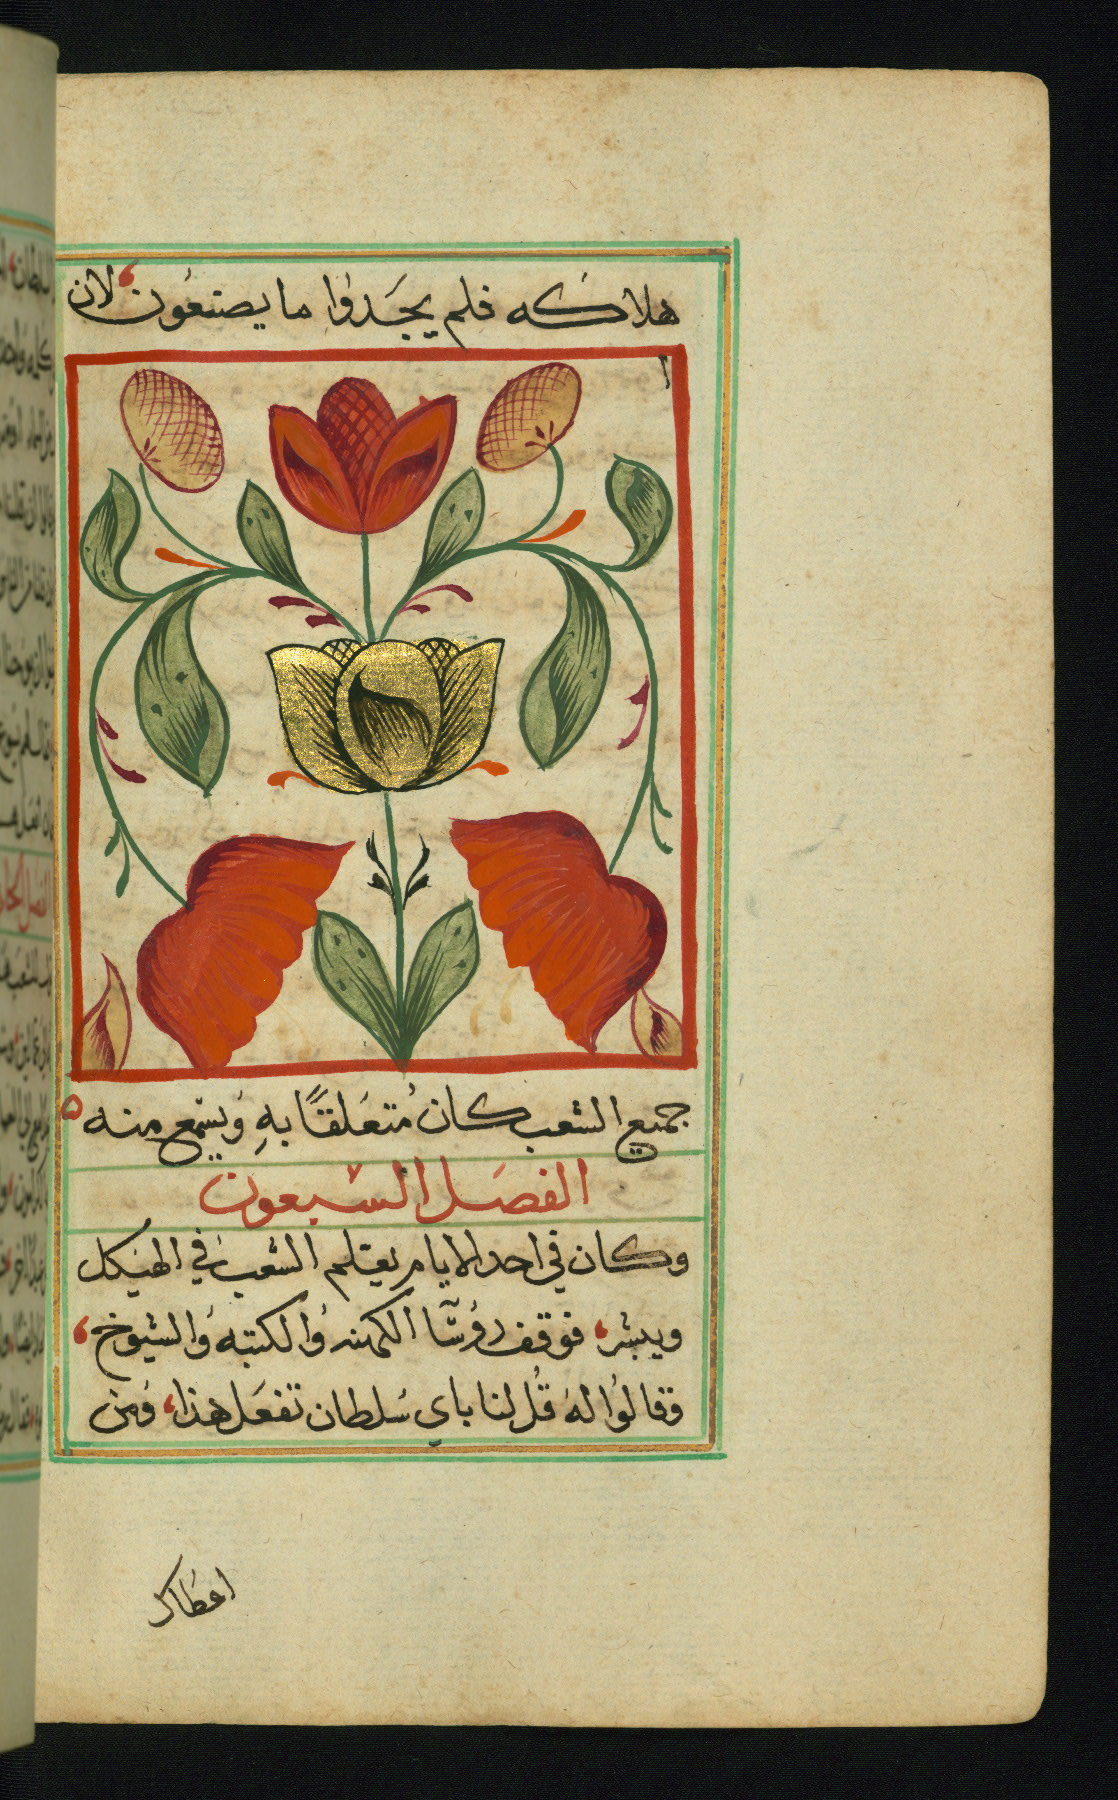 هلاكه فلم يجَدوُا ما يصنعُون لان
جميع الشعب كان مُتعَلقًا بهِ وَيسَتمع منه
الفصَل السَبعون
وكان في احد الايام يعَلم الشعب في الهَيكل
ويبشر فوقف رؤُسَآ الكهنه وُالكتبَه وُالشيُوخ
وقالوُا لهُ قُل لنا باي سُلطان تفعَل هذا، وُمن
اعطاك